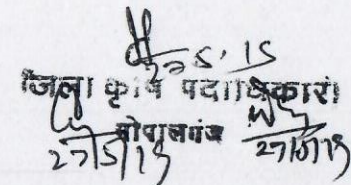 27.5.15
जिला कृषि पदाधिकारी
गोपालगंज
27/5/15 27/5/15